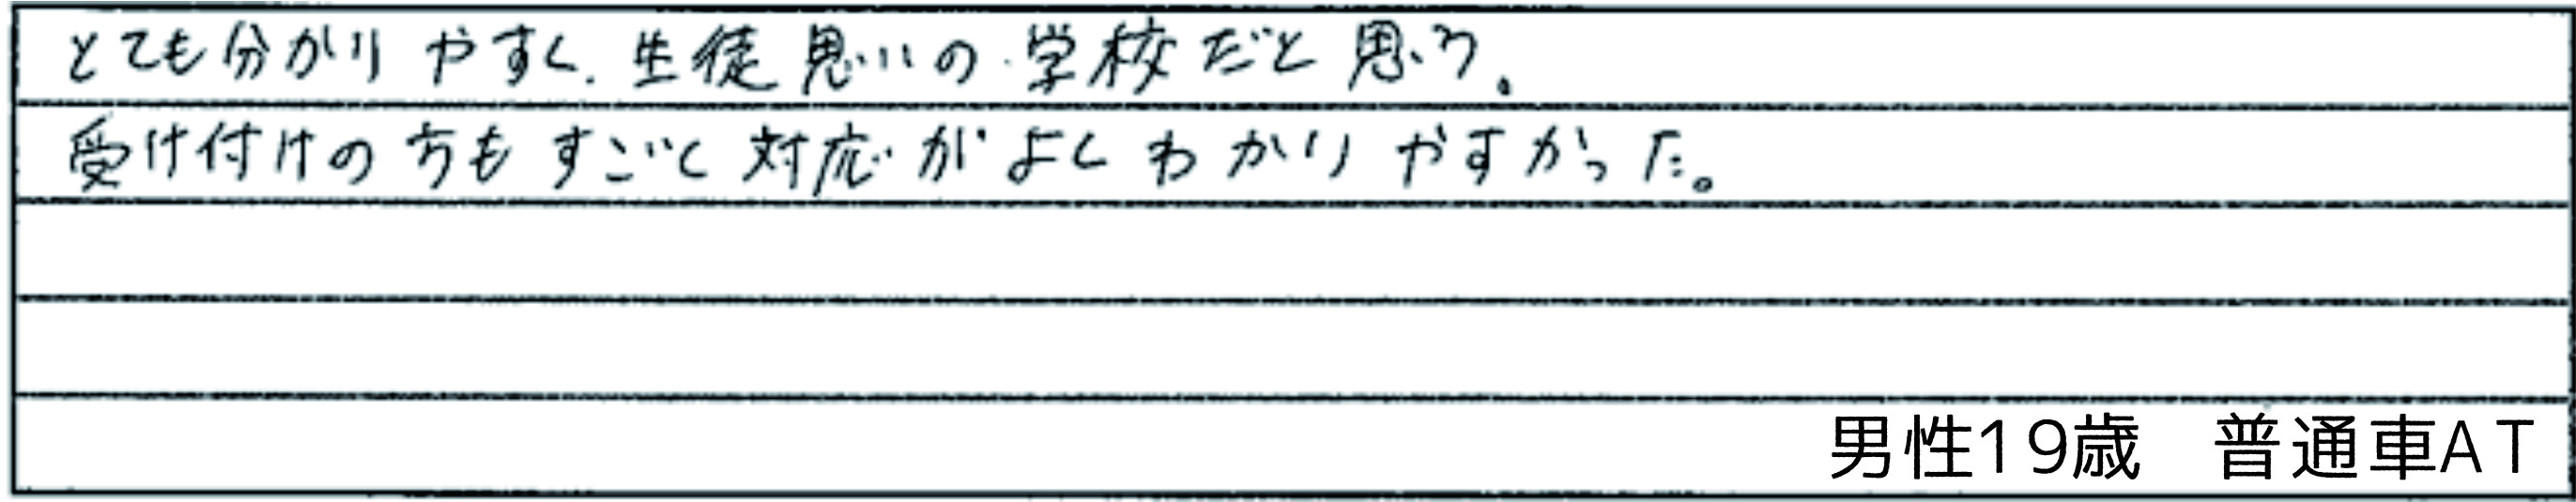 とても分かりやすく、生徒思いの学校だと思う。
受け付けの方もすごく対応がよくわかりやすかった。
男性19歳　普通車AT